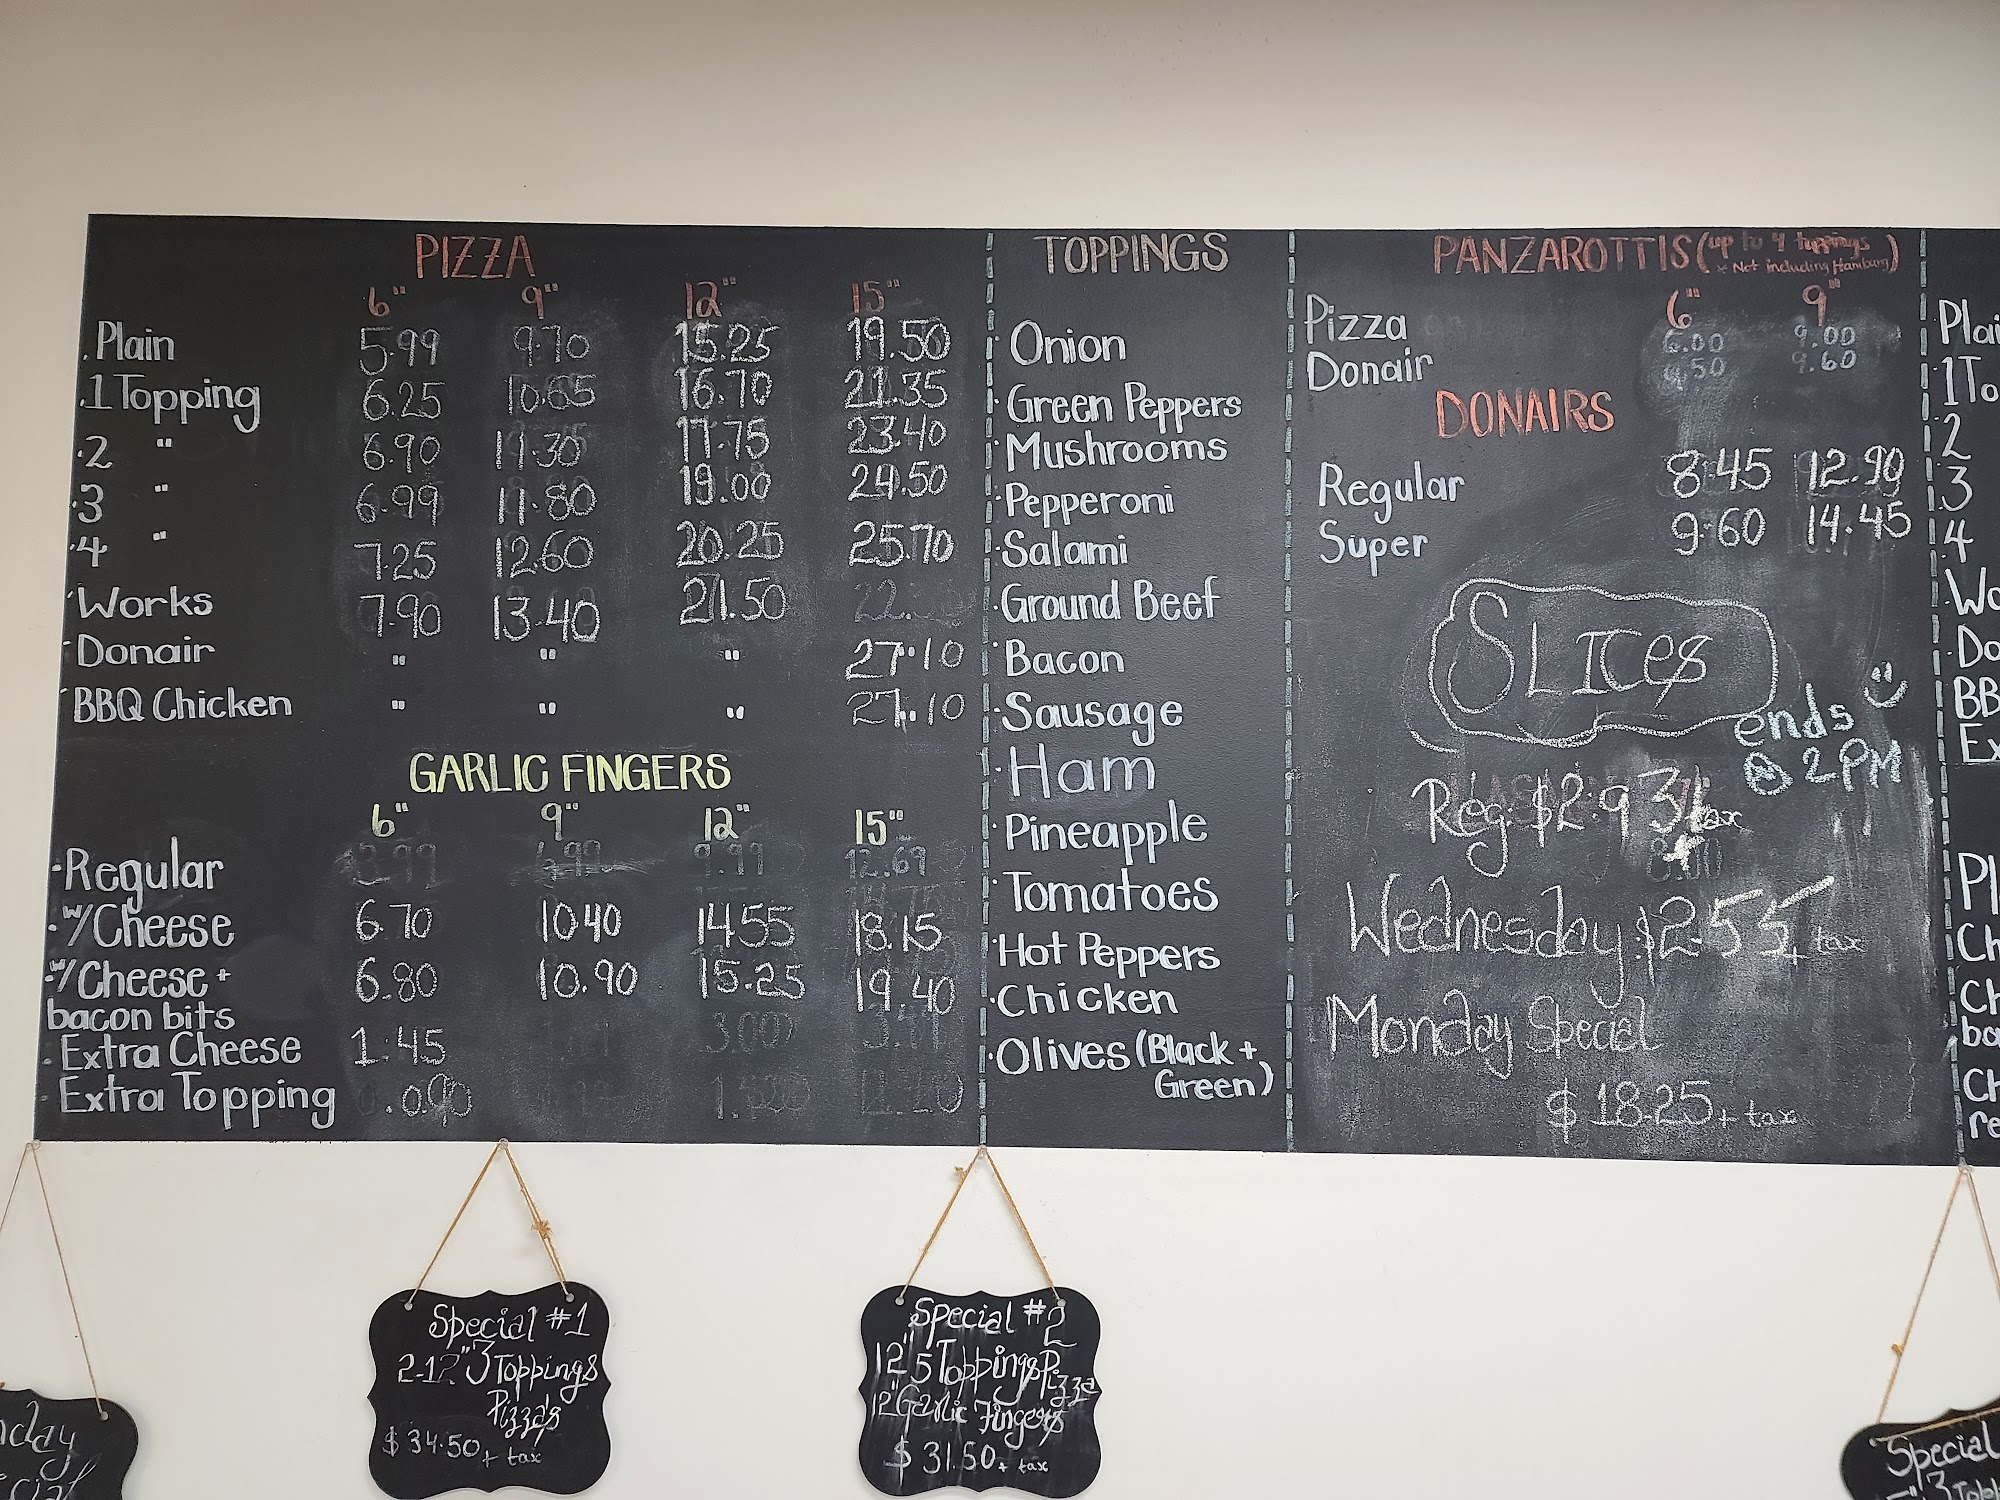 PIZZA
6" 9" 12" 15"
Plain 5.99 9.70 15.25 19.50
1 Topping 6.25 10.65 16.70 21.35
2 " 6.90 11.30 17.75 23.40
3 " 6.99 11.80 19.00 24.50
4 " 7.25 12.60 20.25 25.70
Works 7.90 13.40 21.50
Donair " " " 27.10
BBQ Chicken " " " 27.10
GARLIC FINGERS
6" 9" 12" 15"
Regular 3.99 6.99 9.99 12.69
w/Cheese 6.70 10.40 14.55 18.15
w/Cheese + 6.80 10.90 15.25 19.40
bacon bits
Extra Cheese 1.45 3.00
Extra Topping
TOPPINGS
Onion
Green Peppers
Mushrooms
Pepperoni
Salami
Ground Beef
Bacon
Sausage
Ham
Pineapple
Tomatoes
Hot Peppers
Chicken
Olives (Black +
Green)
PANZAROTTIS (up to 4 toppings
* Not including Hamburg)
6" 9"
Pizza 6.00 9.00
Donair 6.50 9.60
DONAIRS
Regular 8.45 12.90
Super 9.60 14.45
SLICes
ends
@ 2PM
Reg. $2.93 + tax
Wednesday $2.55 + tax
Monday Special
$18.25 + tax
1 To
2
3
4
BB
Special #1
2-12" 3 Toppings
Pizza's
$34.50 + tax
Special #2
12" 5 Toppings Pizza
12" Garlic Fingers
$31.50 + tax
Special